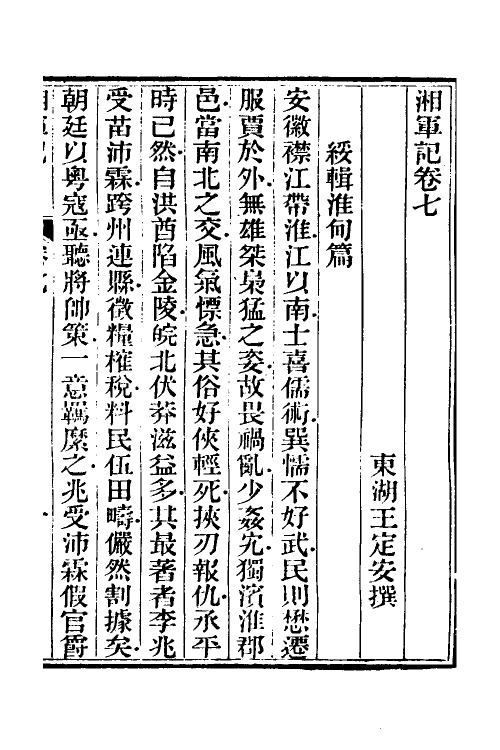 湘軍記卷七
東湖王定安撰
綏輯淮甸篇
安徽襟江帶淮江以南士喜儒術巽懦不好武民則懋遷
服賈於外無雄桀梟猛之姿故畏禍亂少姦宄獨濱淮郡
邑當南北之交風氣慓急其俗好俠輕死挾刃報仇承平
時已然自洪酋陷金陵皖北伏莽滋益多其最著者李兆
受苗沛霖跨州連縣徵糧榷稅料民伍田疇儼然割據矣
朝廷以粵寇亟聽將帥策一意羈縻之兆受沛霖假官爵